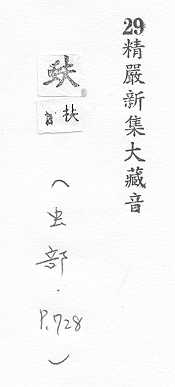 29精嚴新集大藏音
蚨
扶
(虫部.P.728)